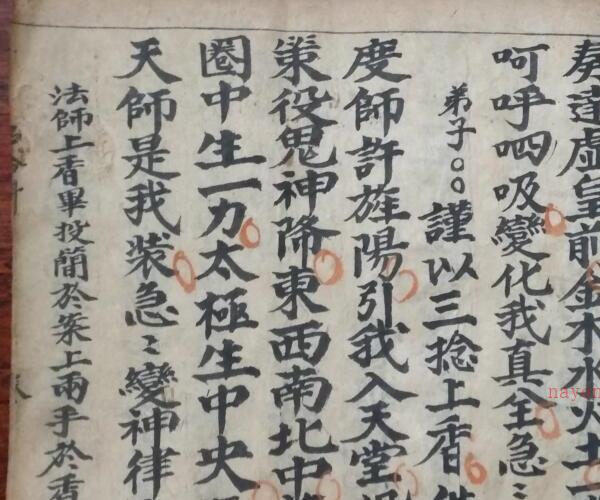 奏達虛皇前金木水火土
呵呼呬吸變化我真全急〻
弟子〇〇謹以三捻上香
度師許旌陽引我入天堂
策役鬼神降東西南北中
圈中生一力太極生中央
天師是我装急〻變神律
法師上香畢投簡於案上兩手於香
nayan